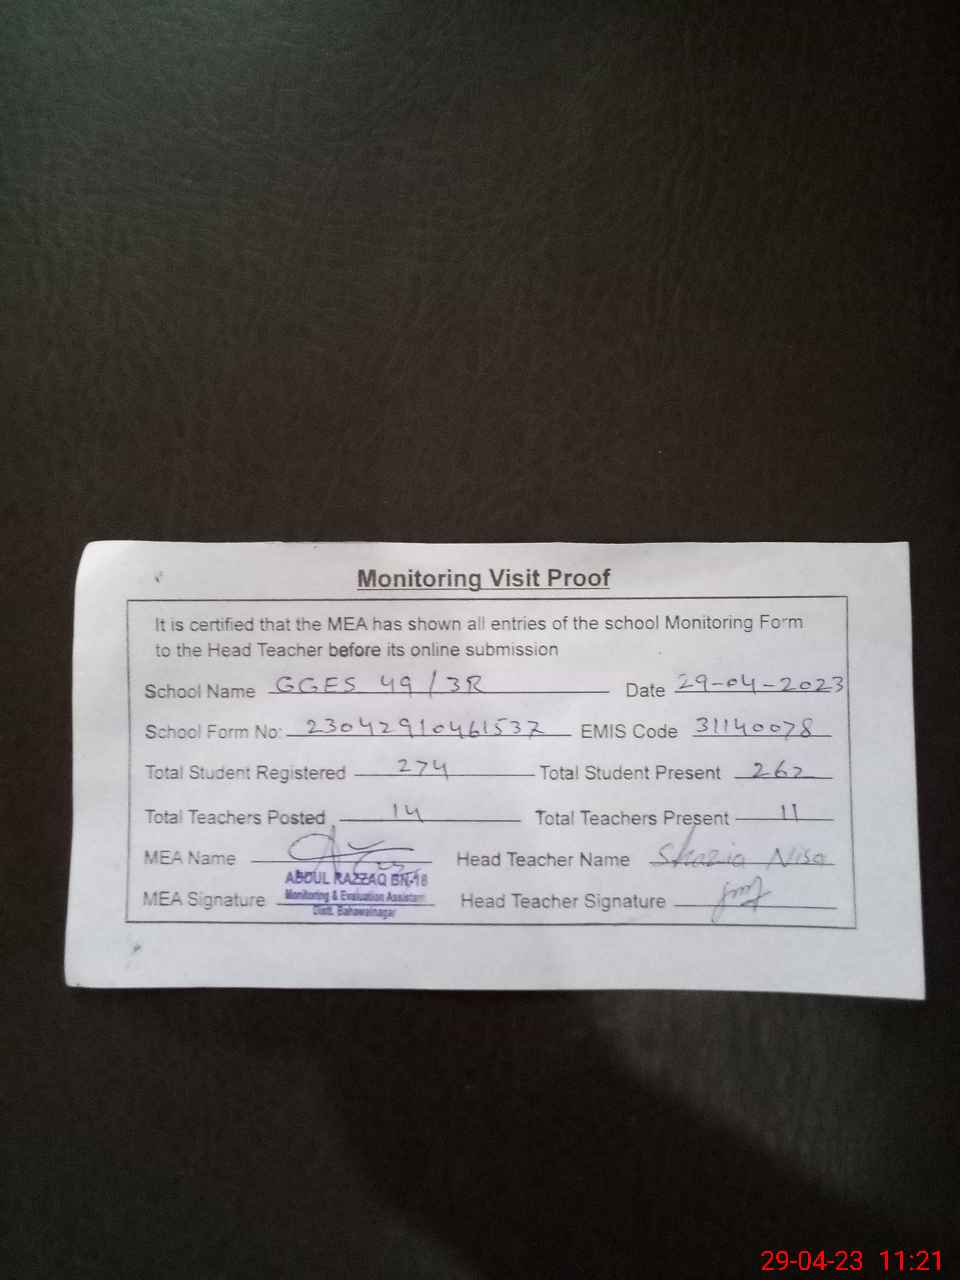 Monitoring Visit Proof
It is certified that the MEA has shown all entries of the school Monitoring Form
to the Head Teacher before its online submission
School Name GGES 49/3R Date 29-04-2023
School Form No: 23042910461537 EMIS Code 31140078
Total Student Registered 274 Total Student Present 262
Total Teachers Posted 14 Total Teachers Present 11
MEA Name Head Teacher Name Shazia Nisa
ABDUL RAZZAQ BN-18
MEA Signature Monitoring & Evaluation Assistant Head Teacher Signature
Distt. Bahawalnagar
29-04-23 11:21